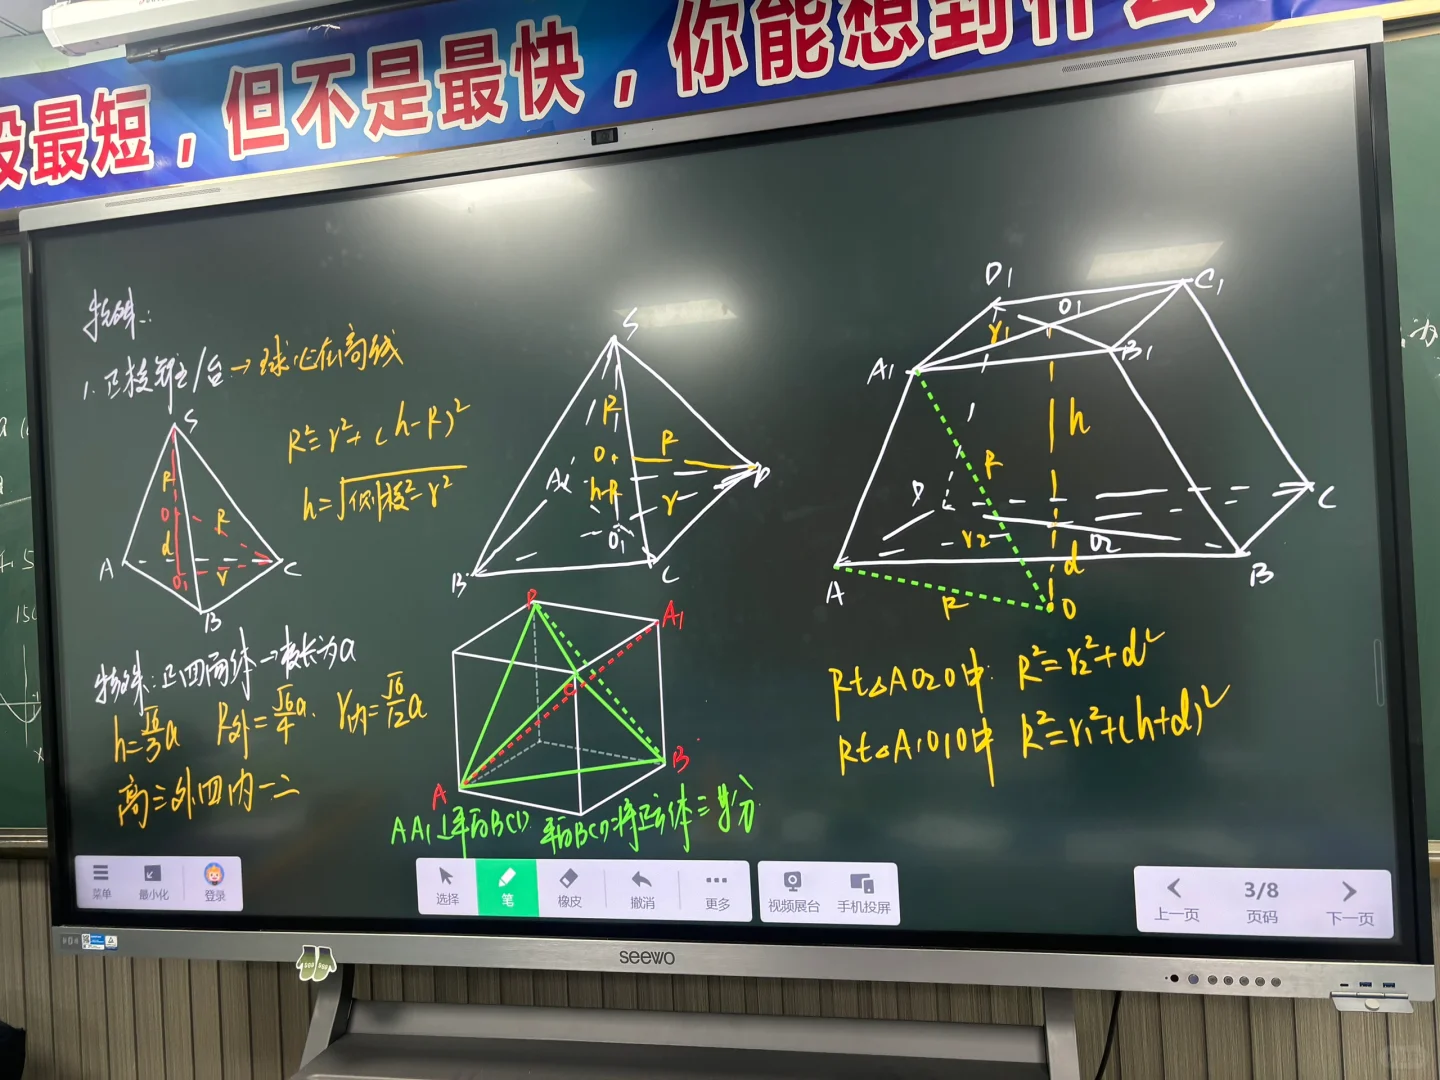 段最短，但不是最快，你能想到什么
特殊：
1.正棱锥/台→球心在高线
R²=r²+(h-R)²
h=√侧棱²-r²
S
R
O
R
d
O₁
r
A
C
B
特殊:正四面体→棱长为a
h=√6/3a R外=√6/4a. r内=√6/12a
高三外四内一二
S
R
O
R
h-R
r
A
D
O₁
B
C
P
A₁
C
A
B
AA₁⊥平面BCD 平面BCD将正方体三等分
D₁
O₁
C₁
r₁
A₁
B₁
h
R
D
C
r₂
O₂
d
A
B
R
O
Rt△AO₂O中: R²=r₂²+d²
Rt△A₁O₁O中 R²=r₁²+(h+d)²
菜单
最小化
登录
选择
笔
橡皮
撤消
更多
视频展台
手机投屏
上一页
3/8
页码
下一页
seewo